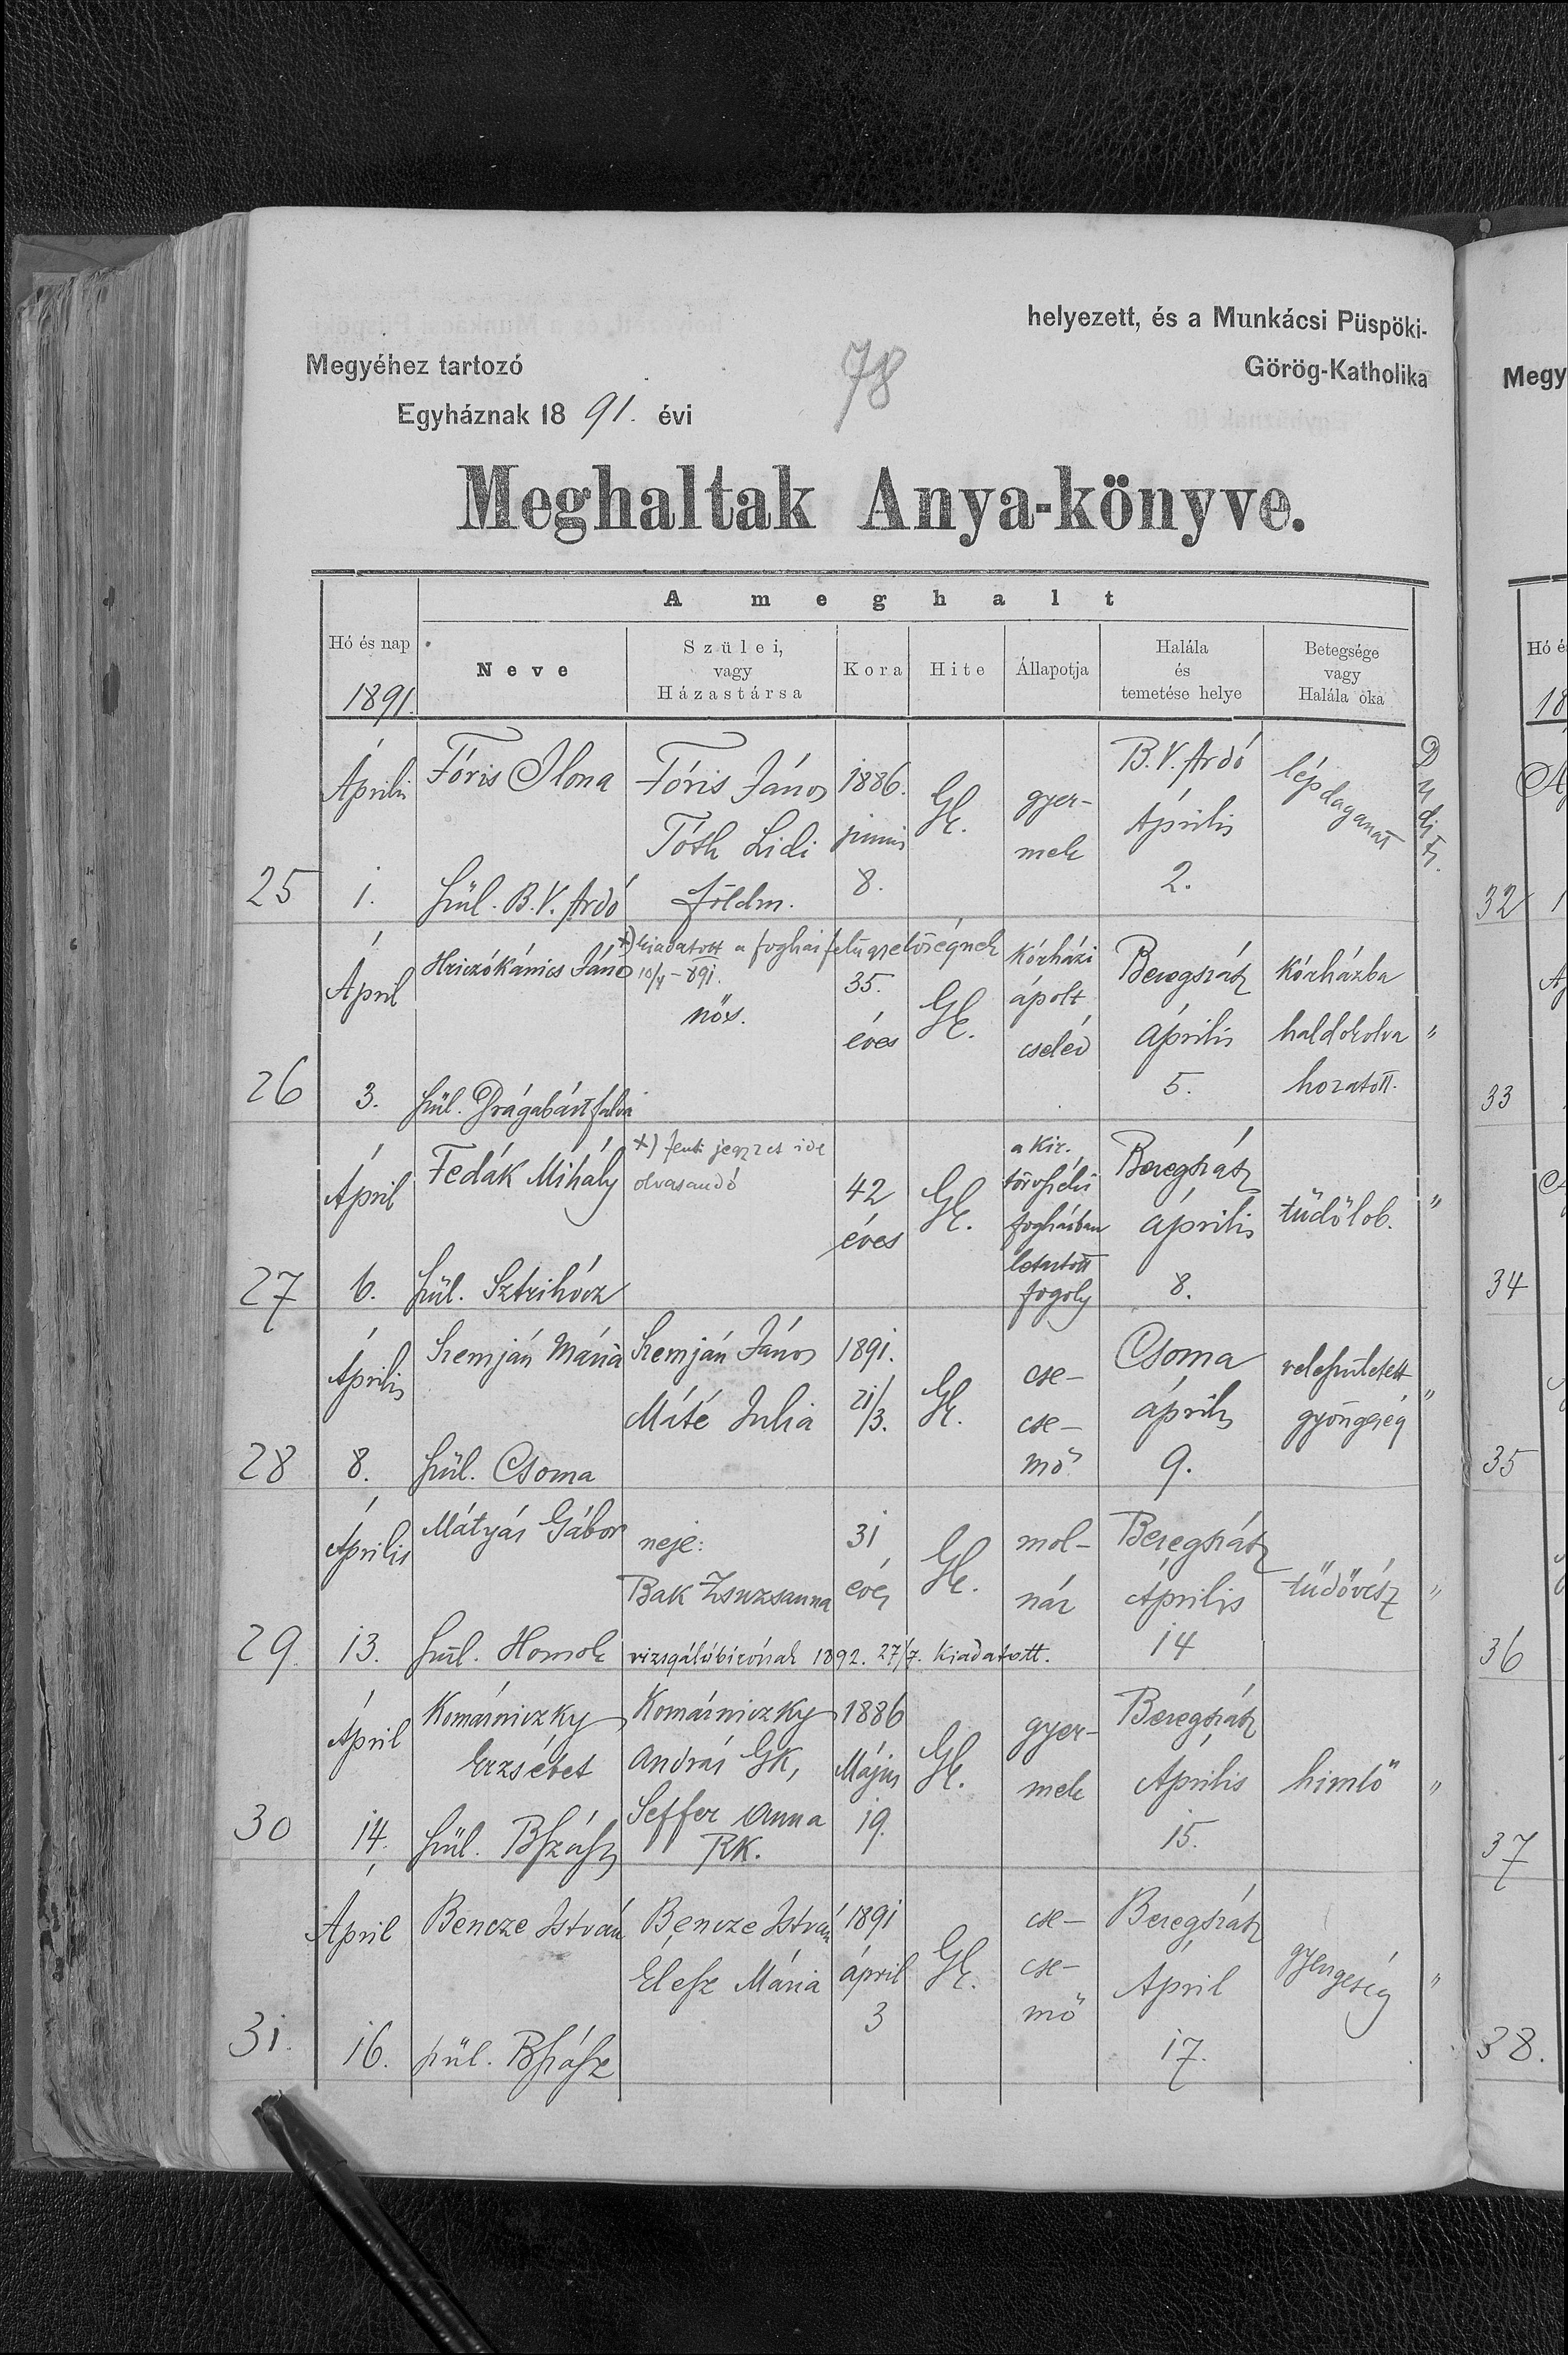 helyezett, és a Munkácsi Püspöki-
Megyéhez tartozó
Görög-Katholika
78
Egyháznak 1891. évi
Meghaltak Anya-könyve.
A meghalt
Hó és nap
1891.
Neve
Szülei,
vagy
Házastársa
Kora
Hite
Állapotja
Halála
és
temetése helye
Betegsége
vagy
Halála oka
25
Április
1.
Fóris Ilona
szül. B.V. Ardó
Fóris János
Tóth Lidi
földm.
1886.
junius
8.
GK.
gyer-
mek
B.V. Ardó
Április
2.
lépdaganat
26
Ápril
3.
Hriczókánics János
szül. Drágabártfalva
x) kiadatott a fogház felügyelőségnek
10/4 - 891.
nős.
35.
éves
GK.
Kórházi
ápolt
cseléd
Beregszász
április
5.
Kórházba
haldokolva
hozatott.
"
27
Ápril
6.
Fedák Mihály
szül. Sztrihócz
x) fenti jegyzet ide
olvasandó
42
éves
GK.
a Kir.
törvszéki
fogházban
letartott
fogoly
Beregszász
április
8.
tüdőlob.
"
28
Április
8.
Szemján Mária
szül. Csoma
Szemján János
Máté Julia
1891.
21/3.
GK.
cse-
cse-
mő
Csoma
április
9.
veleszületett
gyöngeség
"
29
Április
13.
Mátyás Gábor
szül. Homok
neje:
Bak Zsuzsanna
vizsgálóbirónak 1892. 27/7. Kiadatott.
31
éves
GK.
mol-
nár
Beregszász
Április
14
tüdővész
"
30
Ápril
14.
Komárniczky
Erzsébet
szül. BSzász
Komárniczky
András GK,
Seffer Anna
RK.
1886
Május
19.
GK.
gyer-
mek
Beregszász
Április
15.
himlő
"
31.
Ápril
16.
Bencze István
szül. BSzász
Bencze István
Elesz Mária
1891
ápril
3
GK.
cse-
cse-
mő
Beregszász
Ápril
17.
gyengeség
"
Megy
Hó é
18
32
33
34
35
36
37
38.